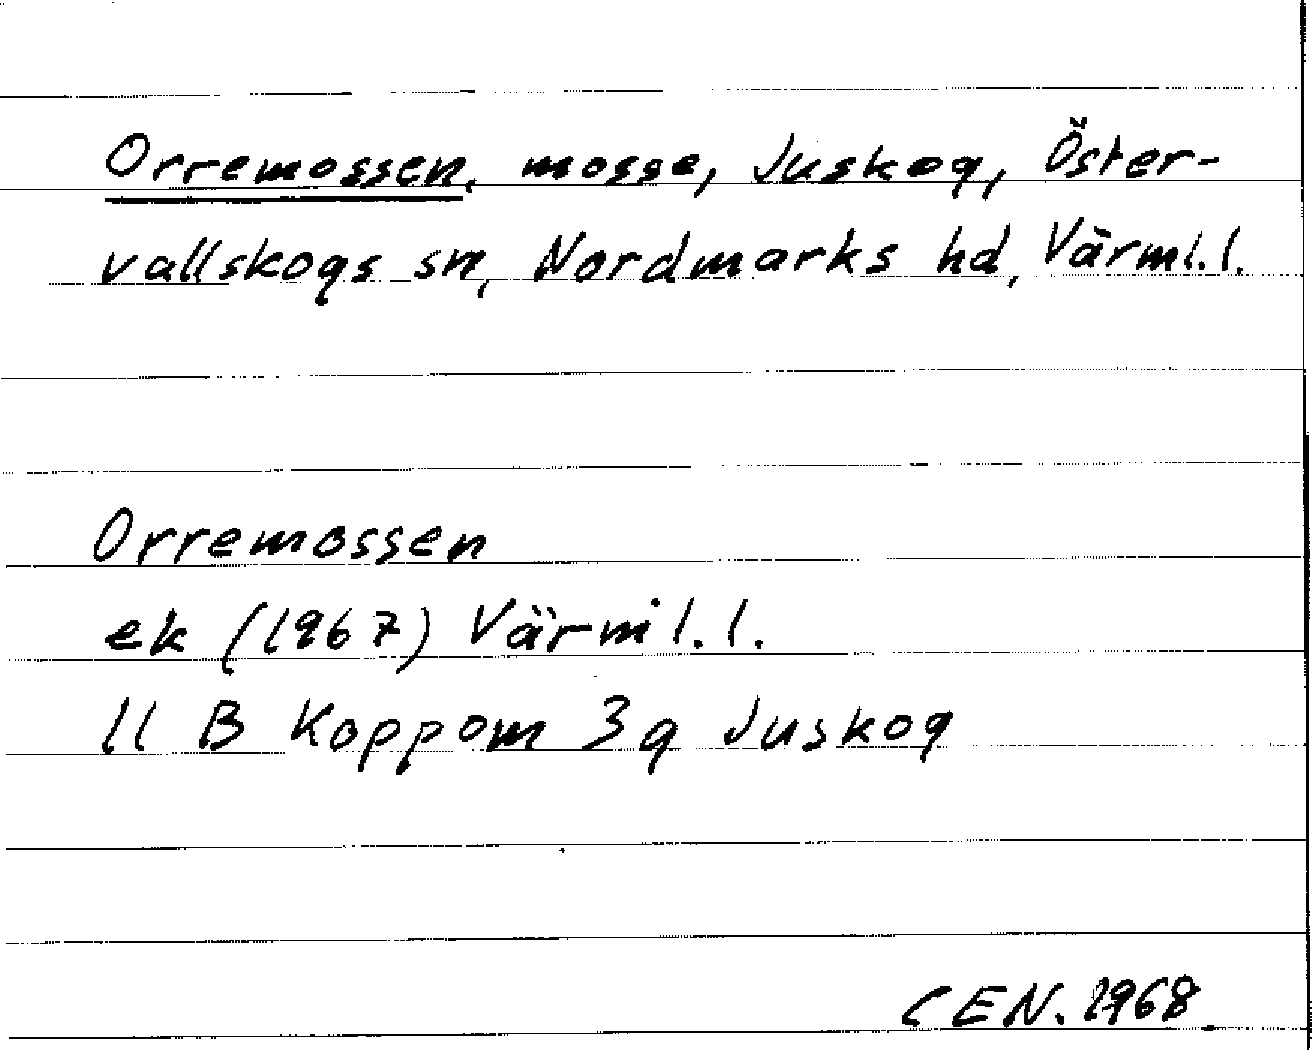 Orremossen, mosse, Juskog, Öster-
vallskogs sn, Nordmarks hd, Värml.l.
Orremossen
ek (1967) Värml.l.
11 B Koppom 3g Juskog
CEN. 1968